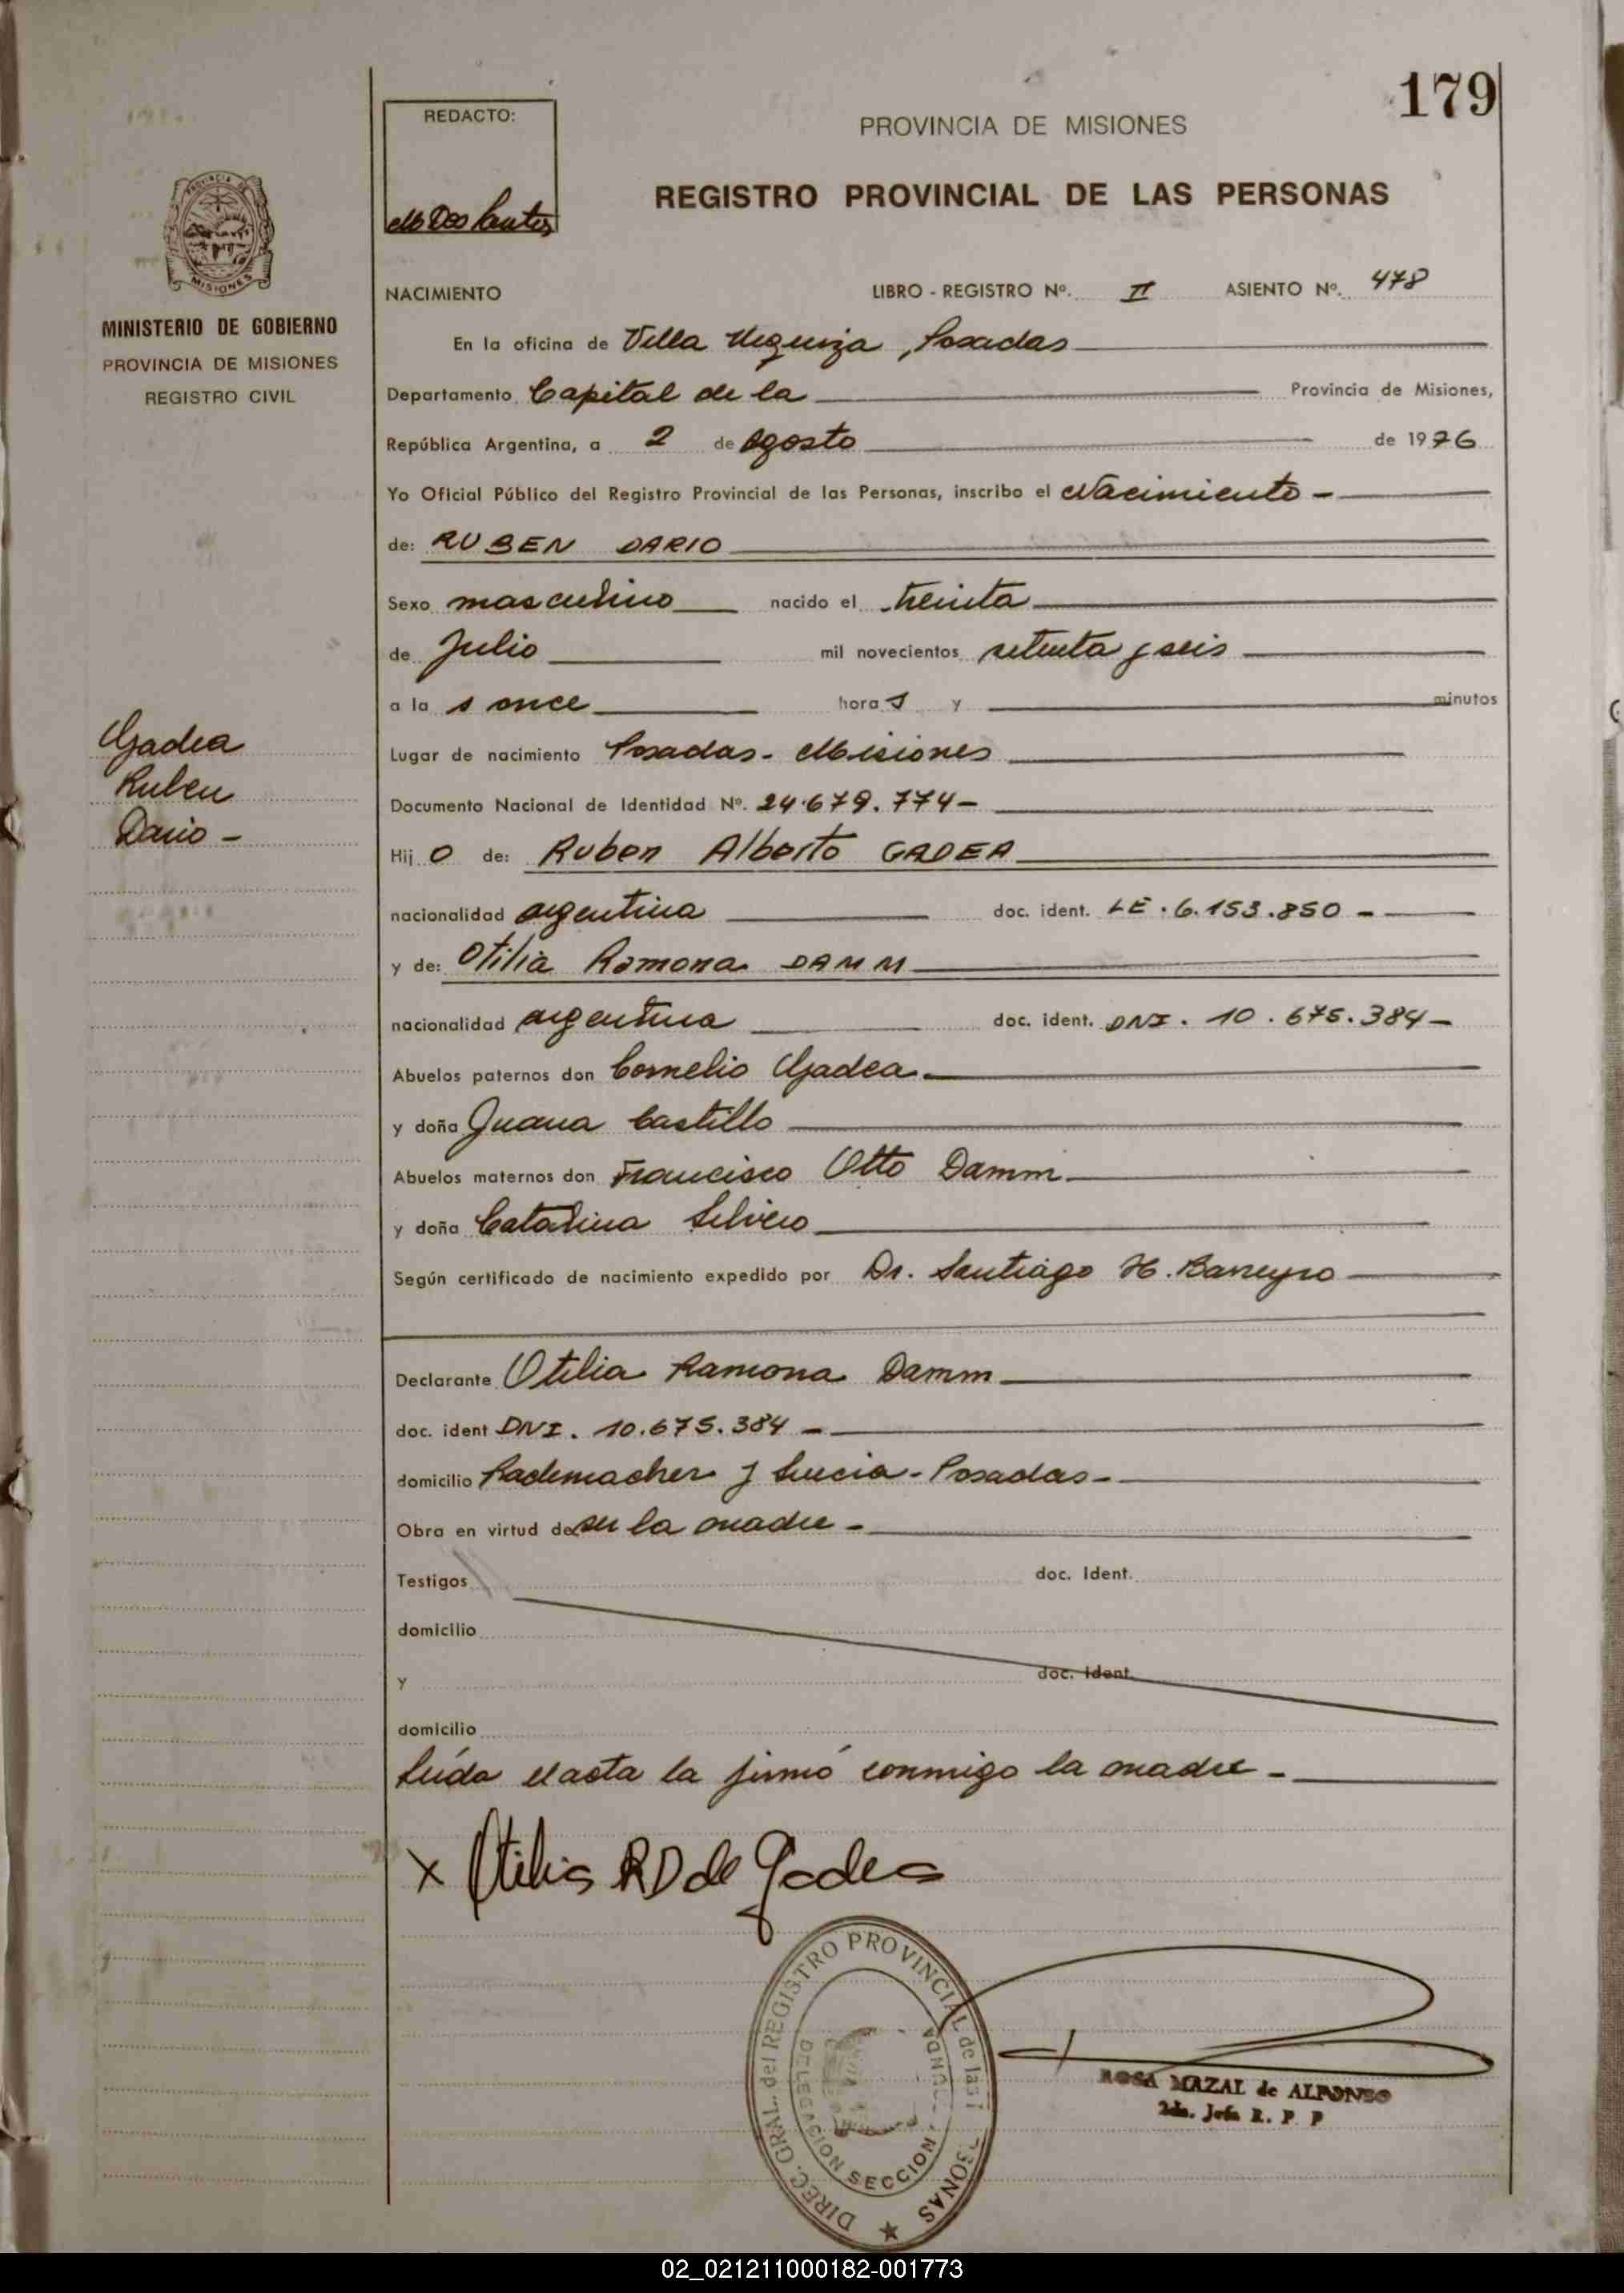 179
REDACTO:
M Dos Santos
PROVINCIA DE MISIONES
REGISTRO PROVINCIAL DE LAS PERSONAS
PROVINCIA DE
MISIONES
MINISTERIO DE GOBIERNO
PROVINCIA DE MISIONES
REGISTRO CIVIL
NACIMIENTO LIBRO - REGISTRO Nº. II ASIENTO Nº. 478
En la oficina de Villa Urquiza, Posadas
Departamento Capital de la Provincia de Misiones,
República Argentina, a 2 de Agosto de 1976
Yo Oficial Público del Registro Provincial de las Personas, inscribo el Nacimiento -
de: RUBEN DARIO
Sexo masculino nacido el treinta
de Julio mil novecientos setenta y seis
a la s once hora s y minutos
Gadea
Ruben
Dario -
Lugar de nacimiento Posadas - Misiones
Documento Nacional de Identidad Nº. 24.679.774 -
Hij o de: Ruben Alberto GADEA
nacionalidad argentina doc. ident. LE. 6.153.850 -
y de: Otilia Ramona DAMM
nacionalidad argentina doc. ident. DNI. 10.675.384 -
Abuelos paternos don Cornelio Gadea
y doña Juana Castillo
Abuelos maternos don Francisco Otto Damm
y doña Catalina Silvero
Según certificado de nacimiento expedido por Dr. Santiago H. Barreyro
Declarante Otilia Ramona Damm
doc. ident DNI. 10.675.384 -
domicilio Rademacher y Suecia - Posadas -
Obra en virtud de ser la madre -
Testigos doc. Ident.
domicilio
y doc. Ident.
domicilio
Leída el acta la firmó conmigo la madre -
X Otilia R D de Gadea
DIREC. GRAL. del REGISTRO PROVINCIAL de las PERSONAS
DELEGACION SECCION
ROSA MAZAL de ALFONSO
2da. Jefa R. P. P
02_021211000182-001773